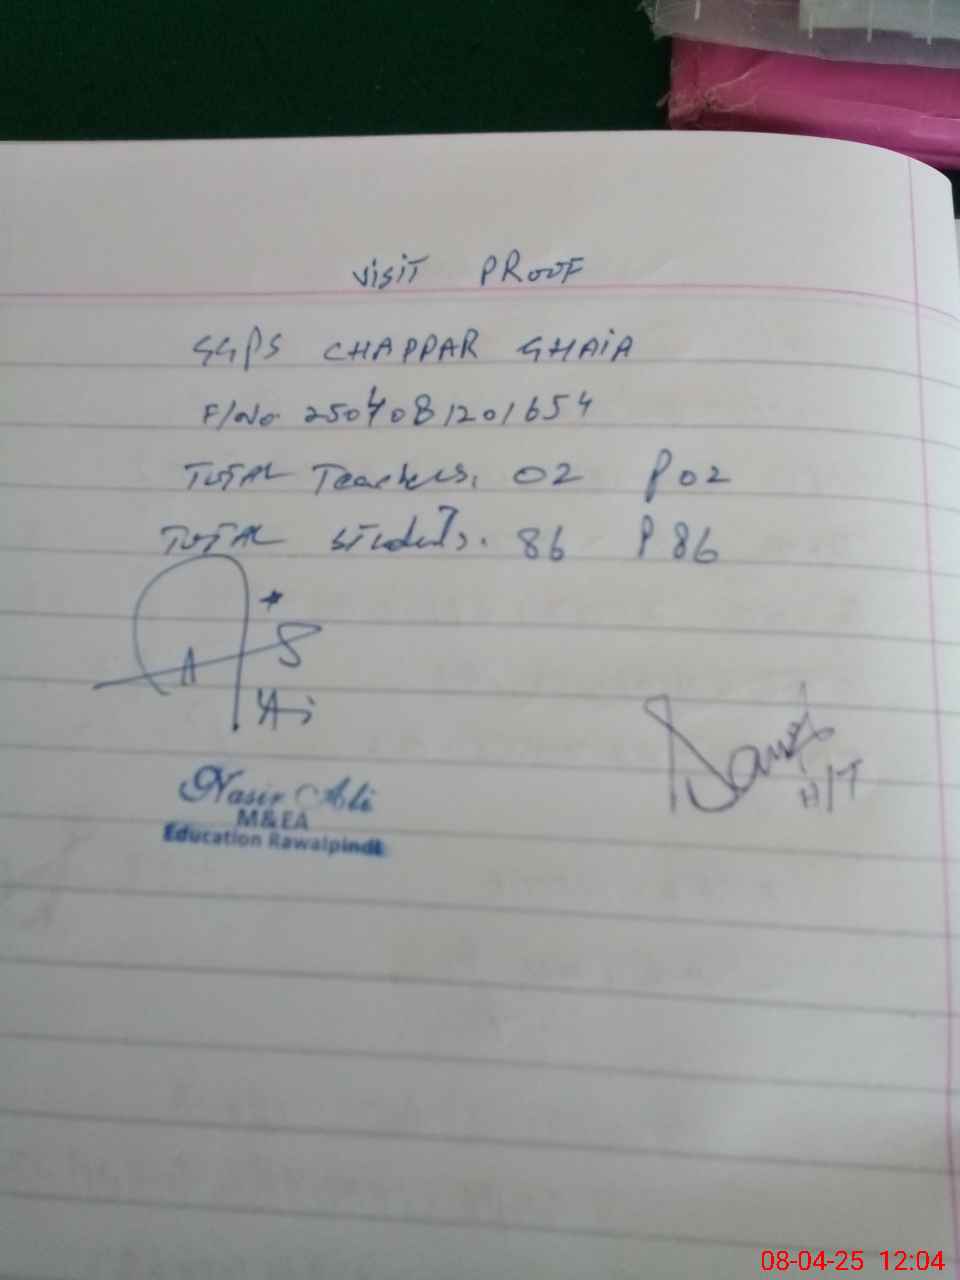 VISIT PROOF
GGPS CHAPPAR GHAIA
F/No 2504081201654
TOTAL Teachers. 02 P 02
TOTAL Students. 86 P 86
Nasir Ali
M&EA
Education Rawalpindi
H/T
08-04-25 12:04